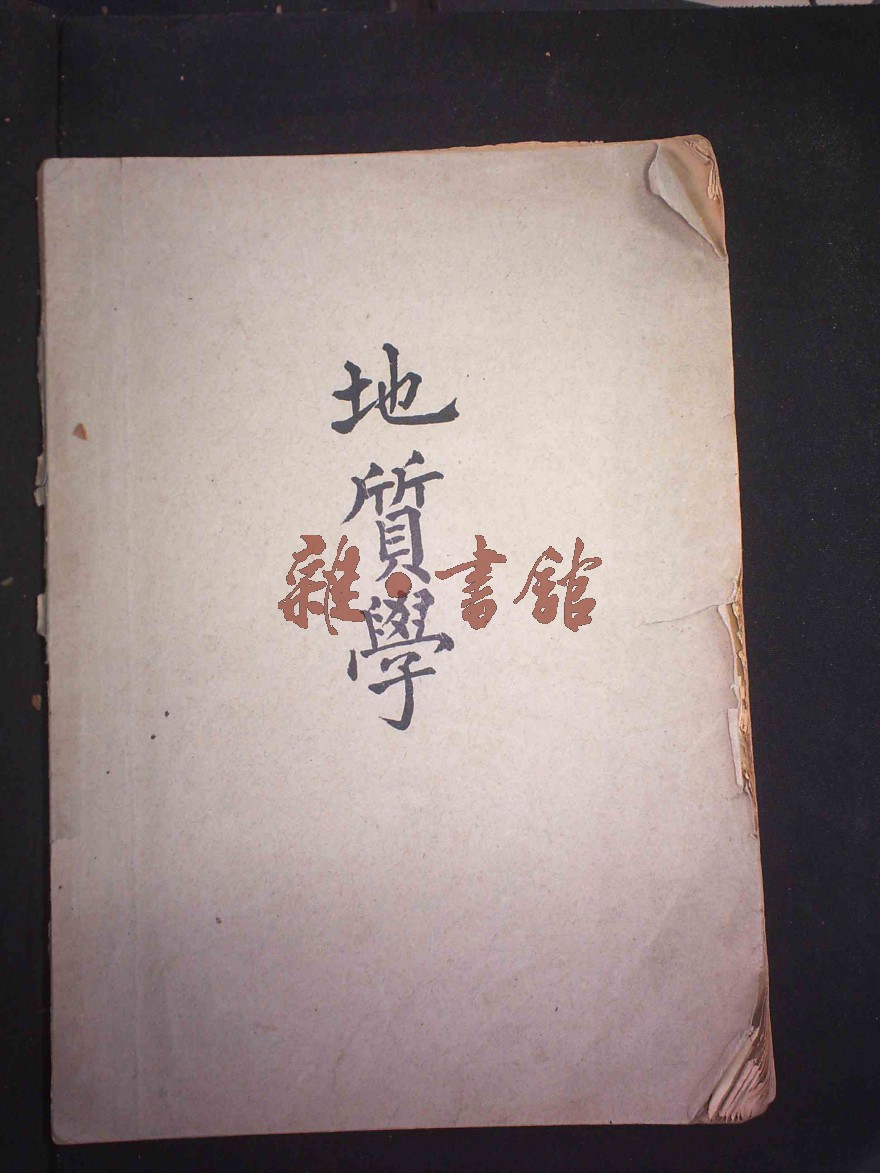 地質學
雜·書舘